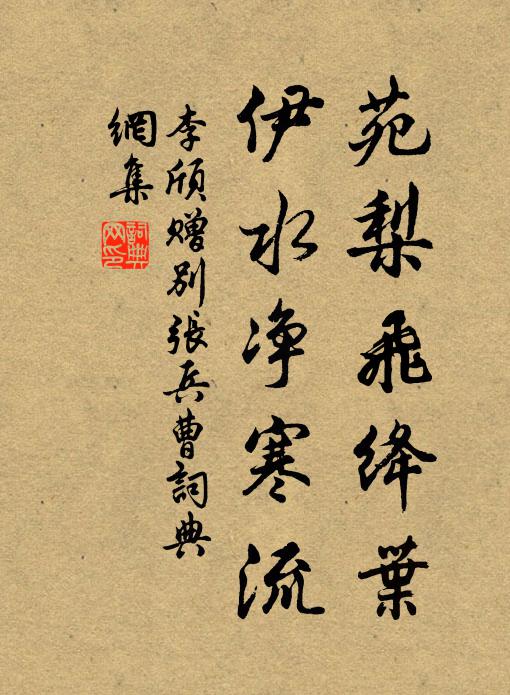 苑梨飛絳葉
伊水净寒流
李頎赠别張兵曹詞典
網集
詞典
网印